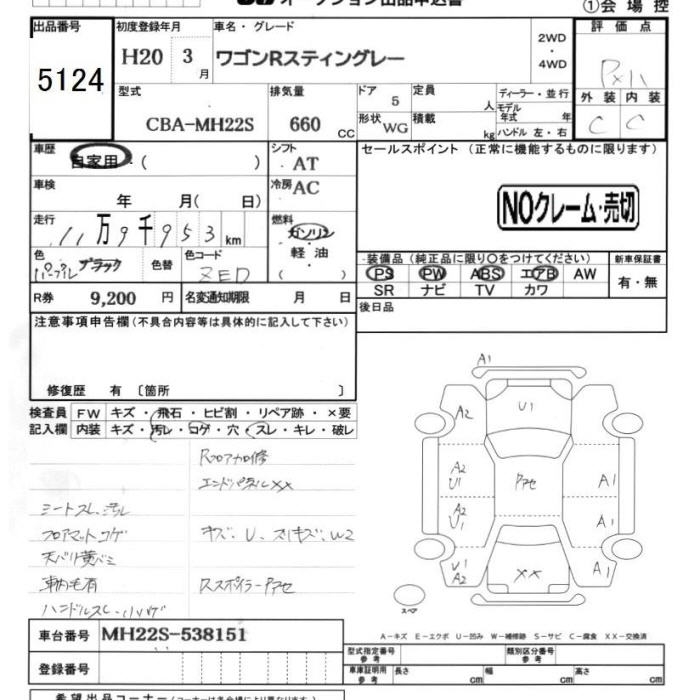 オークション出品申込書
①会場控
出品番号
5124
初度登録年月
H20 3月
車名・グレード
ワゴンRスティングレー
2WD
・
4WD
評価点
外装 内装
C C
型式
CBA-MH22S
排気量
660 CC
ドア 5
定員 人
ディーラー・並行
モデル年式 年
形状 WG
積載 kg
ハンドル 左・右
車歴
自家用 ( )
シフト AT
セールスポイント (正常に機能するものに限ります)
車検 年 月( 日)
冷房 AC
NOクレーム・売切
走行
11万9千953km
燃料 ガソリン
軽油
( )
色
パープルブラック
色替
色コード
ZED
装備品 (純正品に限り○をつけてください)
PS PW ABS エアB AW
SR ナビ TV カワ
新車保証書
有・無
R券 9,200 円
名変通知期限 月 日
後日品
注意事項申告欄 (不具合内容等は具体的に記入して下さい)
修復歴 有 〔箇所 〕
検査員記入欄
FW キズ・飛石・ヒビ割・リペア跡・×要
内装 キズ・汚レ・コゲ・穴・スレ・キレ・破レ
Rフロアカロ修
エンドパネルXX
シートスレ、汚レ
フロアマットコゲ
キズ、U、スリキズ、W2
天バリ黄バミ
車内毛有
A1
A2
U1
A2
U1
A2
U1
A1
A1
U1
A2
XX
A1
スペア
A-キズ E-エクボ U-凹み W-補修跡 S-サビ C-腐食 XX-交換済
車台番号 MH22S-538151
登録番号
型式指定番号 参考
類別区分番号 参考
車庫証明用 参考 長さ cm 幅 cm 高さ cm
希望出品コーナー